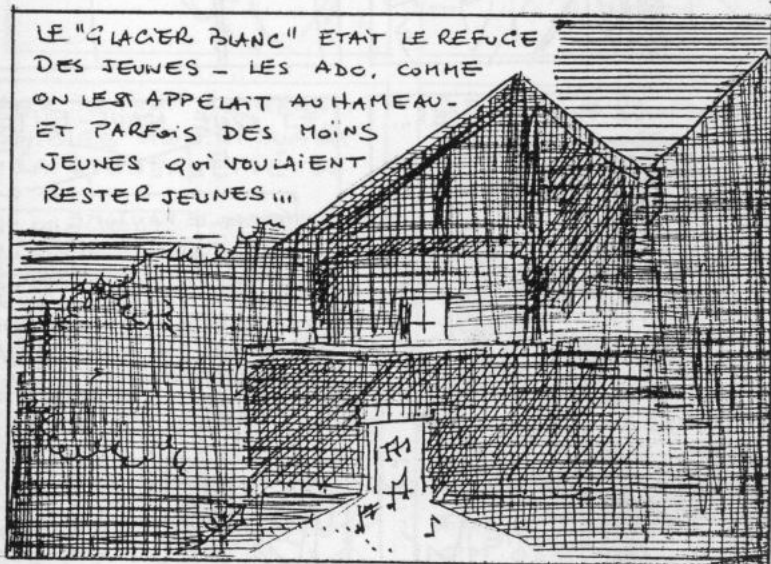 LE "GLACIER BLANC" ETAIT LE REFUGE
DES JEUNES - LES ADO, COMME
ON LES APPELAIT AU HAMEAU -
ET PARFOIS DES MOINS
JEUNES QUI VOULAIENT
RESTER JEUNES...